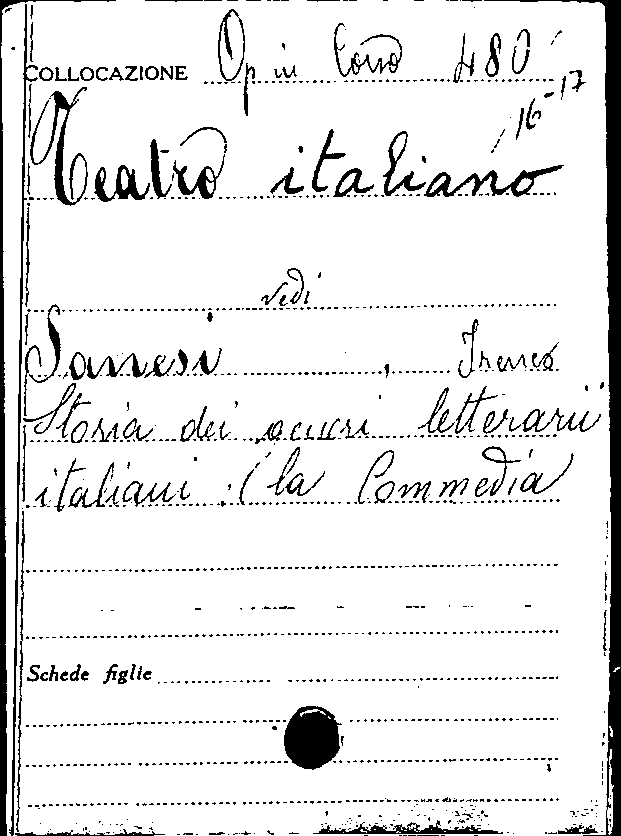 COLLOCAZIONE Op in Corso 480
16-17
Teatro italiano
vedi
Sanesi, Ireneo
Storia dei generi letterarii
italiani : (la Commedia
Schede figlie